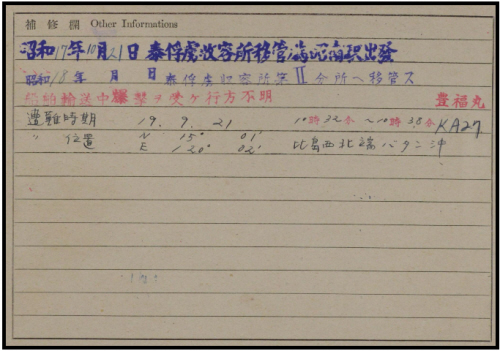 補修欄 Other Informations
昭和17年10月21日 泰俘虜收容所移管ノ為昭南
昭和18年 月 日 泰俘虜収容所第II分所ヘ移管ス
船舶輸送中爆撃ヲ受ケ行方不明 豊福丸
遭難時期 19. 9. 21 10時32分～10時38分 KA27
〃 位置 N 15° 01'
E 120° 02' 比島西北端バタン沖